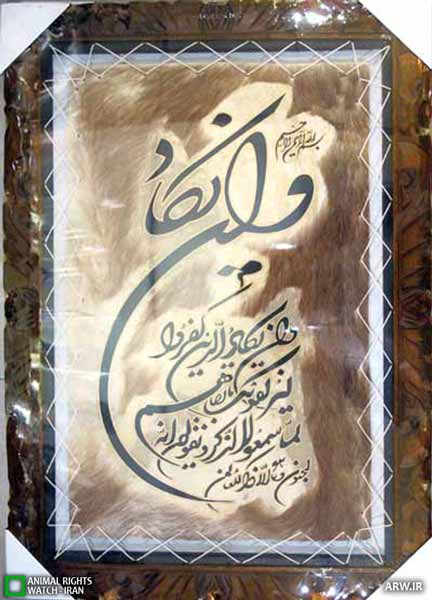 بسم الله الرحمن الرحیم
وان یکاد
وان یکاد الذین کفروا
لیزلقونک بابصارهم
لما سمعوا الذکر و یقولون انه
لمجنون و ما هو الا ذکر للعالمین
ANIMAL RIGHTS
WATCH - IRAN
ARW.IR